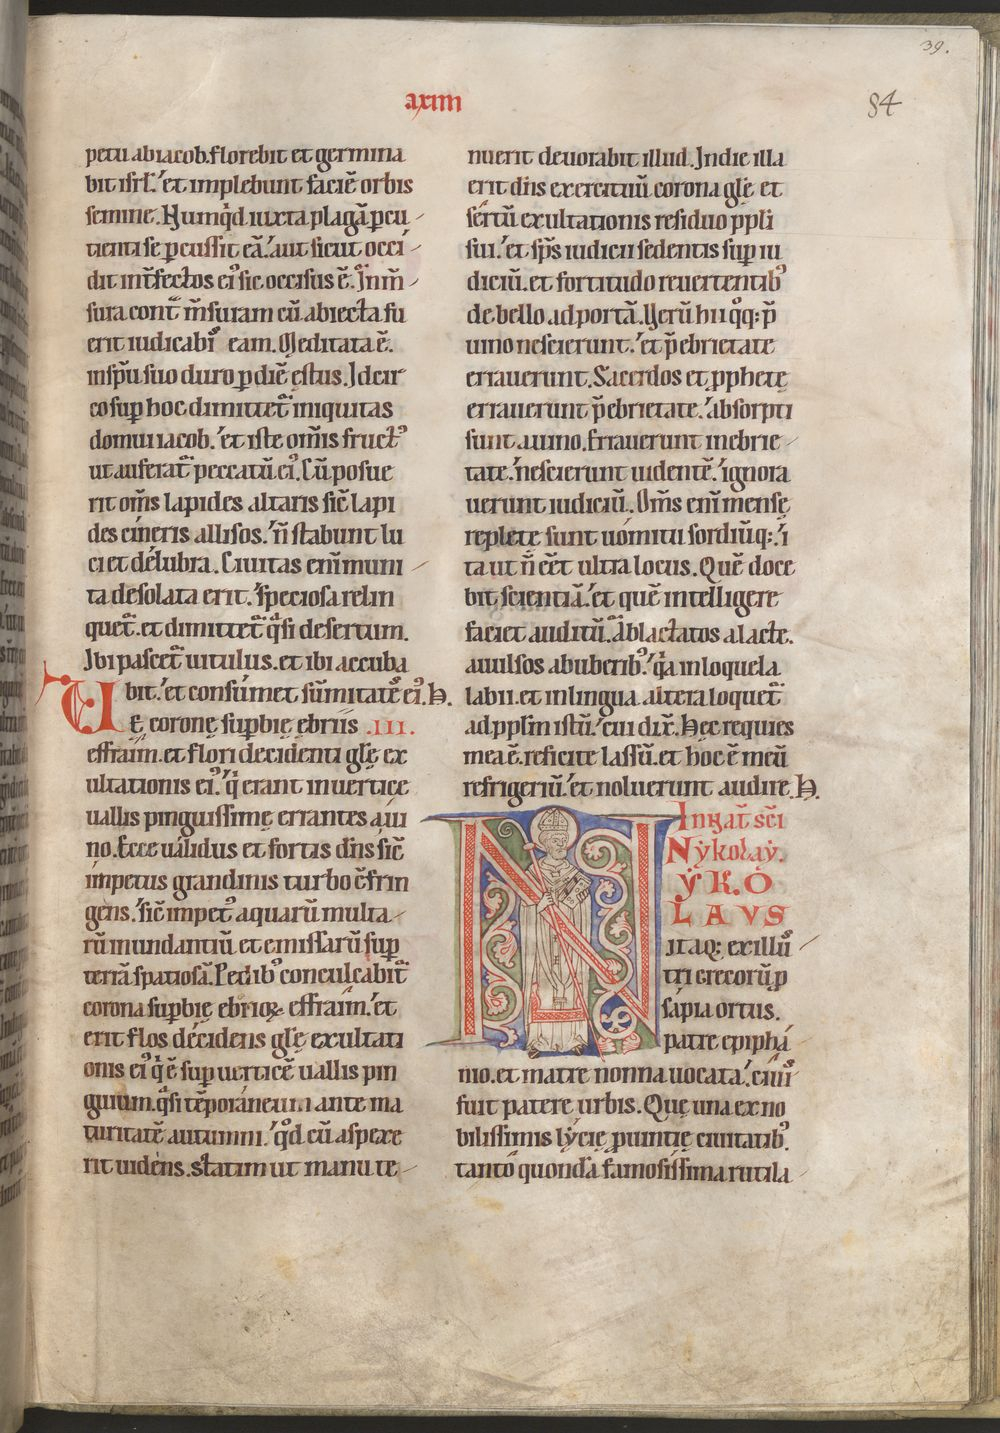 39.
axiiii
84
petu ab iacob. florebit et germina
bit isrl̄. et implebunt faciē orbis
semine. Numq̇d iuxta plagā ꝑcu
tientis se ꝑcussit eā. aut sicut occi
dit int̄fectos eiꝰ sic occisus ē. In m̄
sura cont̄ m̄suram cū abiecta fu
erit iudicabit eam. Meditata ē.
in sp̄u suo duro ꝑ diē ęstus. Idcir
co suꝑ hoc dimittet᷑ iniquitas
domui iacob. et iste om̄is fructꝰ
ut auferat᷑ peccatū eiꝰ. Cū posue
rit om̄s lapides altaris sic̄ lapi
des cineris allisos. n̄ stabunt lu
ci et delubra. Ciuitas eni̅ muni
ta desolata erit. speciosa relin
quet᷑. et dimittet᷑ q̇̄si desertum.
Ibi pascet᷑ uitulus. et ibi accuba
bit. et consumet sūmitatē eiꝰ.
UE coronę suꝑbię ebriis .III.
effraim. et flori decidenti glę̄ ex
ultationis eiꝰ. q̇ erant in uertice
uallis pinguissimę errantes a ui
no. Ecce ualidus et fortis dn̄s sic̄
impetus grandinis turbo c̄frin
gens. sic̄ impetꝰ aquarū multa
rū inundantiū et emissarū suꝑ
terrā spatiosā. Pedibꝰ conculcabit᷑
corona suꝑbię ebrioꝝ effraim. et
erit flos decidens glę̄ exultati
onis eiꝰ q̇ ē suꝑ uerticē uallis pin
guium. q̇̄si tēporaneum ante ma
turitatē autumni. q̇d cū aspexe
rit uidens. statim ut manu te
nuerit deuorabit illud. In die illa
erit dn̄s exercituū corona glę̄ et
sertū exultationis residuo ppl̄i
sui. et sp̄s iudicii sedentis suꝑ iu
diciū. et fortitudo reuertentibꝰ
de bello ad portā. Uerū hii q̊q: p̄
uino nescierunt. et p̄ ebrietate
errauerunt. Sacerdos et ꝓphetę
errauerunt p̄ ebrietate. absorpti
sunt a uino. Errauerunt in ebrie
tate. nescierunt uidentē. ignora
uerunt iudiciū. Om̄s eni̅ mensę
repletę sunt uomitu sordiūq:. i
ta ut n̄ eēt ultra locus. Quē doce
bit scientiā. et quē intelligere
faciet auditū. Ablactatos a lacte.
auulsos ab uberibꝰ. q̇a in loquela
labii. et in lingua altera loquet᷑
ad ppl̄m istū. cui dix̄. Hec requies
mea ē. reficite lassū. et hoc ē meū
refrigeriū. et noluerunt audire.
In nat̄ sc̄i
Nẏkolaẏ.
NẎKO
LAVS
itaq; ex illū
tri grecorū ꝓ
sapia ortus.
patre epipha
nio. et matre nonna uocata. ciuiū
fuit patere urbis. Quę una ex no
bilissimis lẏcię ꝓuintię ciuitatibꝰ.
tanto quondā famosissima rutila